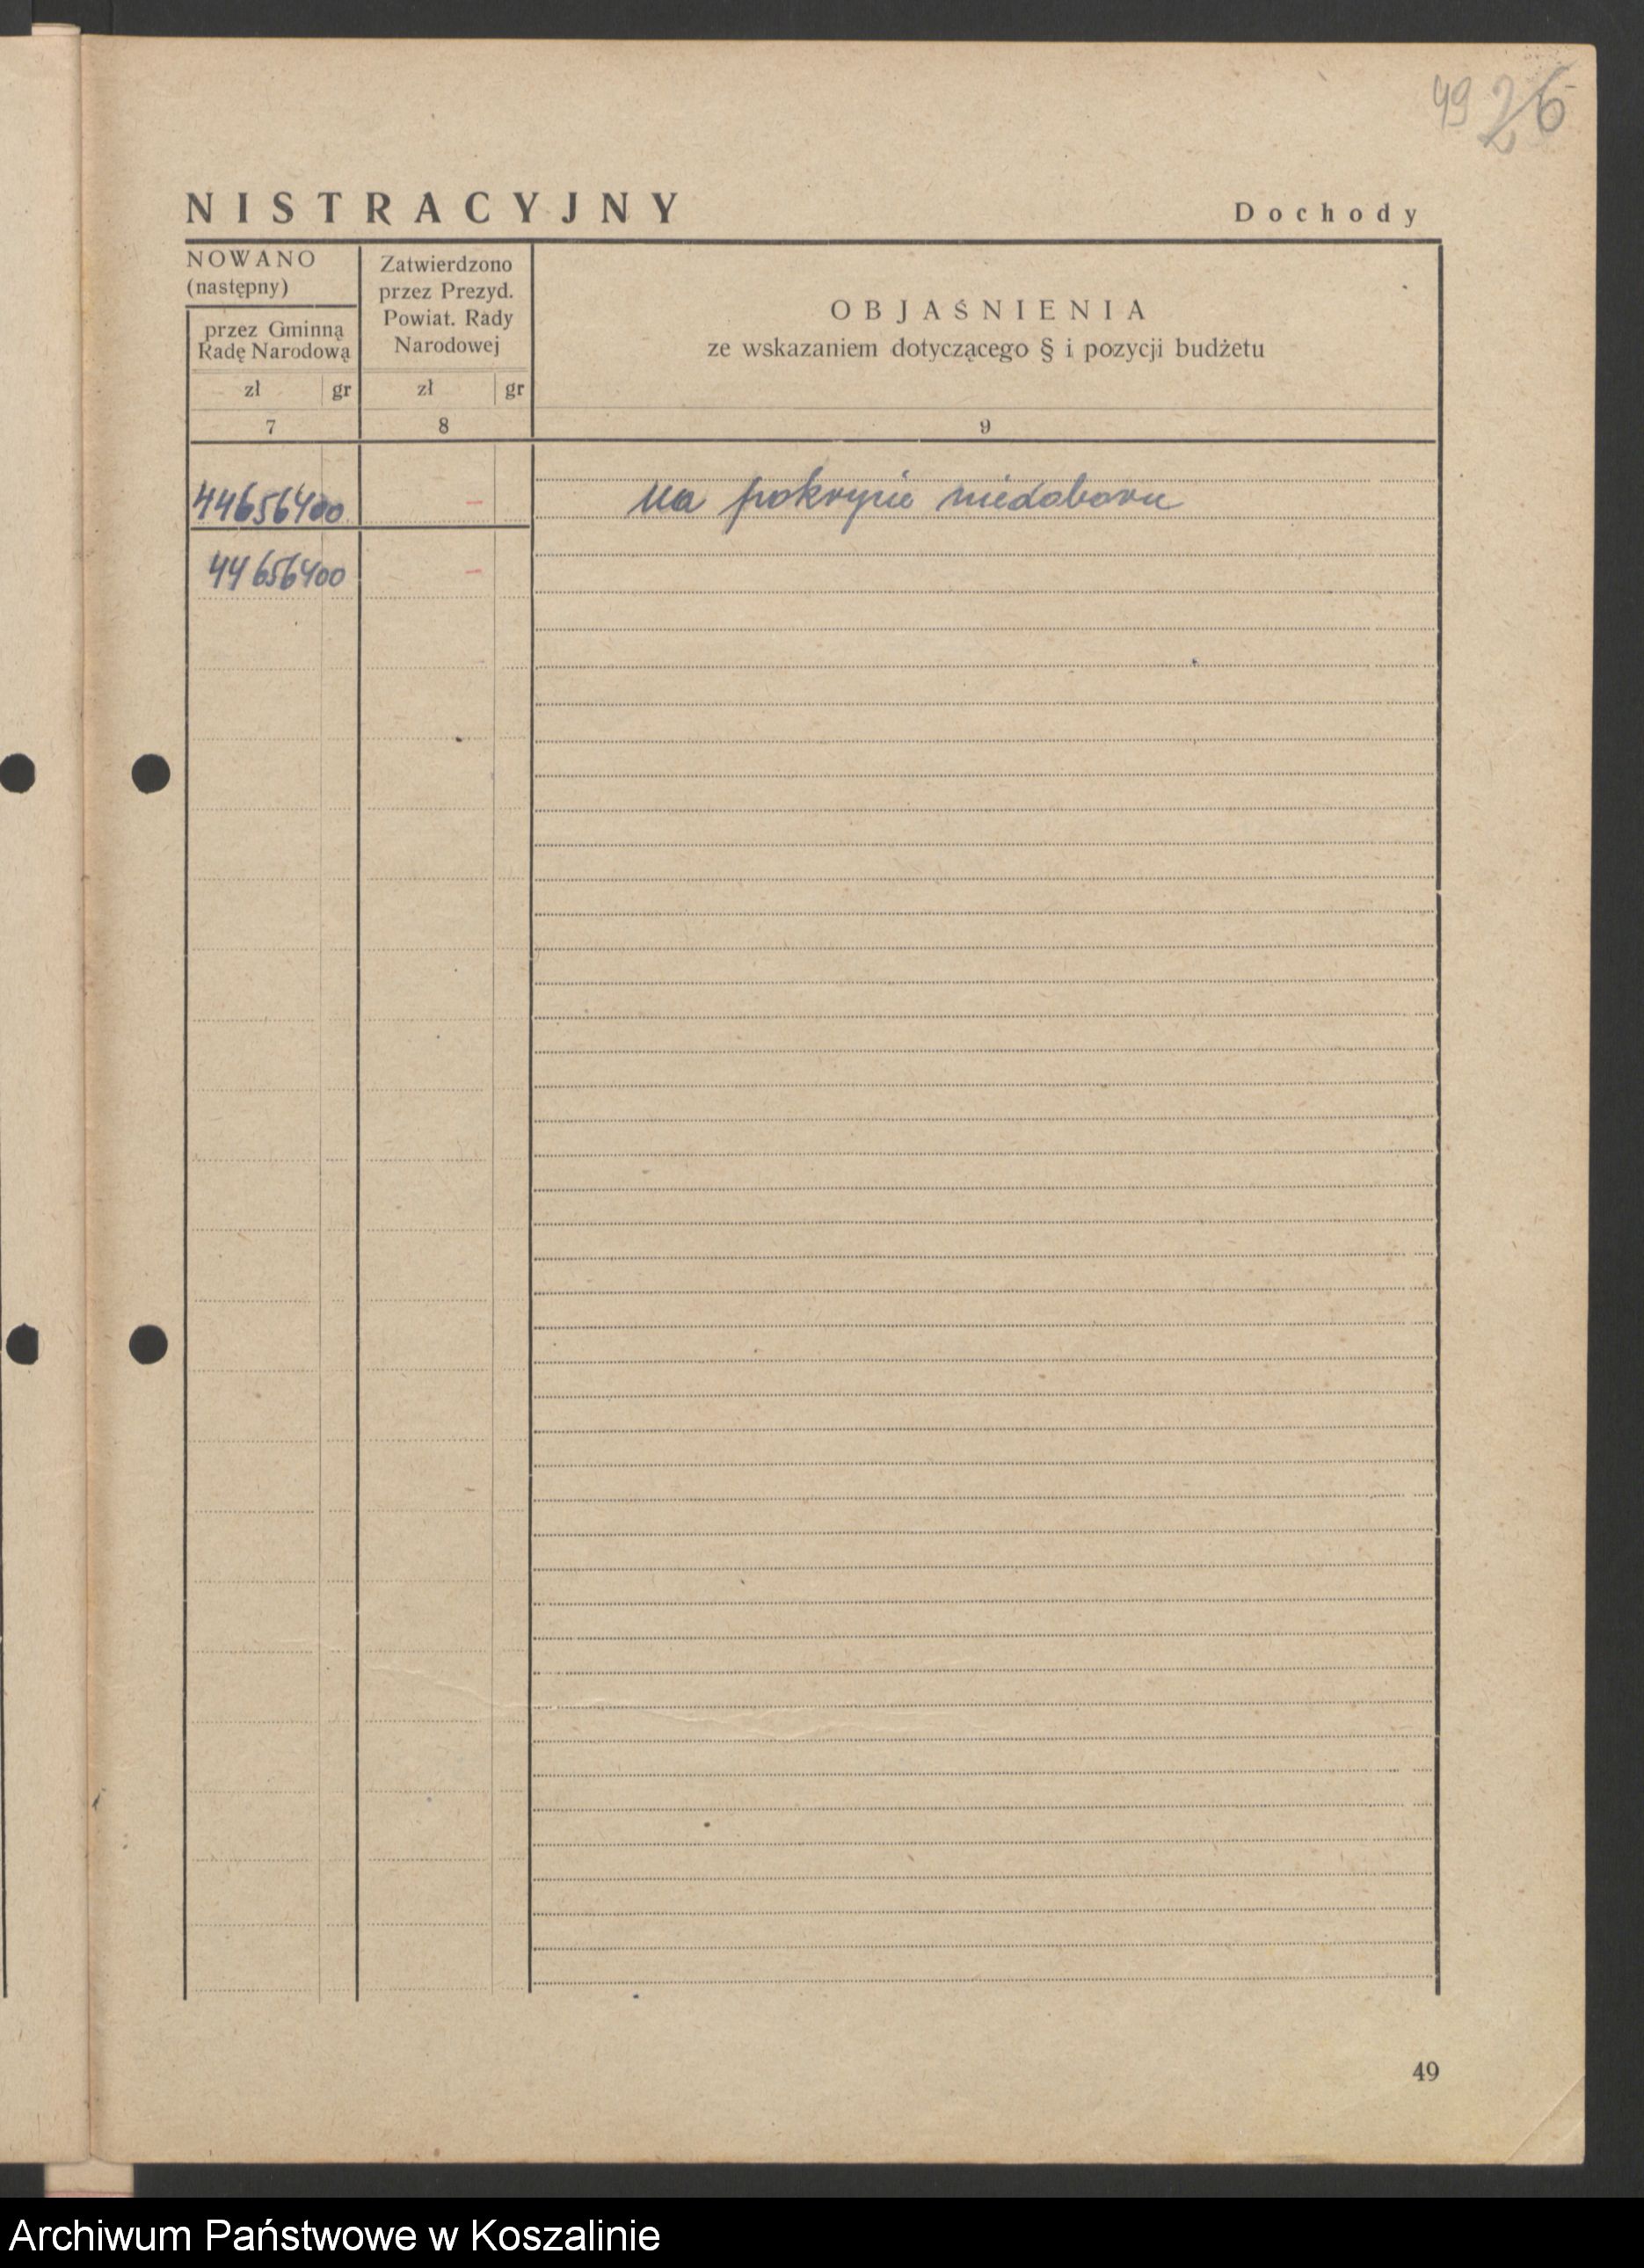 49 26
NISTRACYJNY
Dochody
NOWANO
(następny)
przez Gminną
Radę Narodową
zł gr
7
Zatwierdzono
przez Prezyd.
Powiat. Rady
Narodowej
zł gr
8
OBJAŚNIENIA
ze wskazaniem dotyczącego § i pozycji budżetu
9
446564 00 – na pokrycie niedoboru
446564 00 –
49
Archiwum Państwowe w Koszalinie